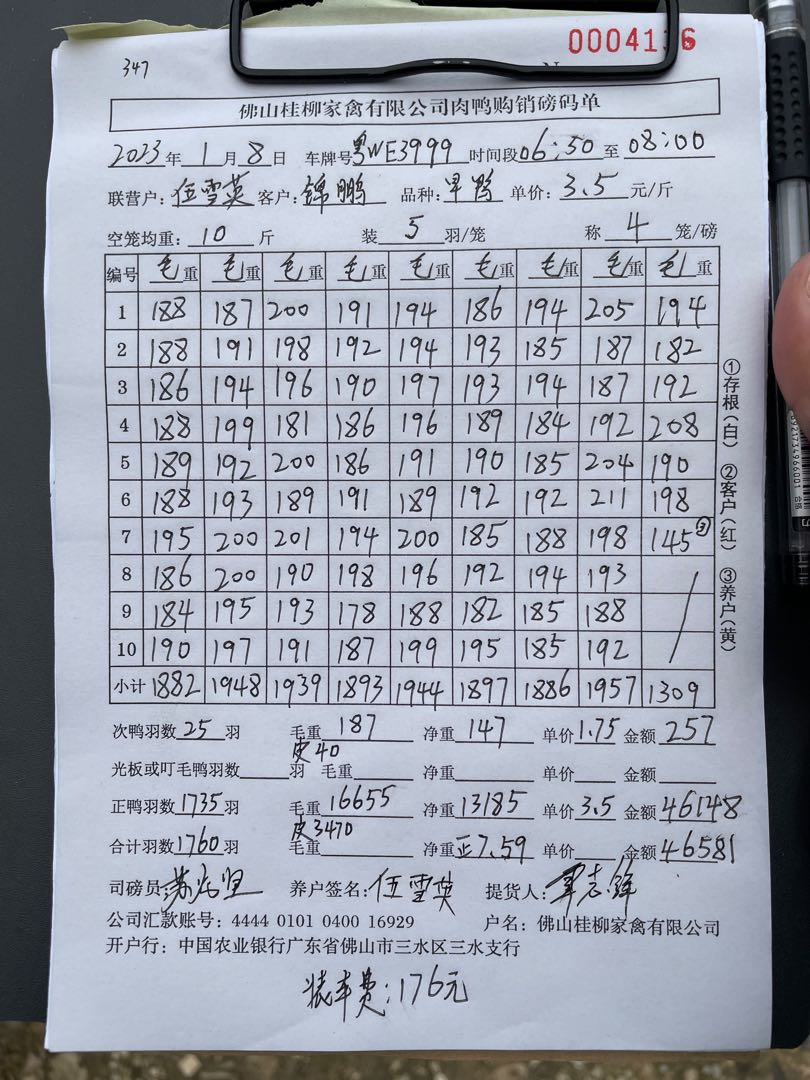 00041 6
347
佛山桂柳家禽有限公司肉鸭购销磅码单
2023年 1月 8日 车牌号粤WE3999 时间段06:50至08:00
联营户:伍雪英 客户:锦鹏 品种:早鸭 单价:3.5元/斤
空笼均重:10斤 装5羽/笼 称4笼/磅
编号 毛重 毛重 毛重 毛重 毛重 毛重 毛重 毛重 毛重
1 188 187 200 191 194 186 194 205 194
2 188 191 198 192 194 193 185 187 182
3 186 194 196 190 197 193 194 187 192
4 188 199 181 186 196 189 184 192 208
5 189 192 200 186 191 190 185 204 190
6 188 193 189 191 189 192 192 211 198
7 195 200 201 194 200 185 188 198 145③
8 186 200 190 198 196 192 194 193
9 184 195 193 178 188 182 185 188
10 190 197 191 187 199 195 185 192
小计 1882 1948 1939 1893 1944 1897 1886 1957 1309
①存根(白) ②客户(红) ③养户(黄)
次鸭羽数25羽 毛重187 净重147 单价1.75 金额257
皮40
光板或叮毛鸭羽数 羽 毛重 净重 单价 金额
正鸭羽数1735羽 毛重16655 净重13185 单价3.5 金额46148
皮3470
合计羽数1760羽 毛重 净重正7.59 单价 金额46581
司磅员 养户签名:伍雪英 提货人:覃志锋
公司汇款账号:4444 0101 0400 16929 户名:佛山桂柳家禽有限公司
开户行:中国农业银行广东省佛山市三水区三水支行
装车费:176元